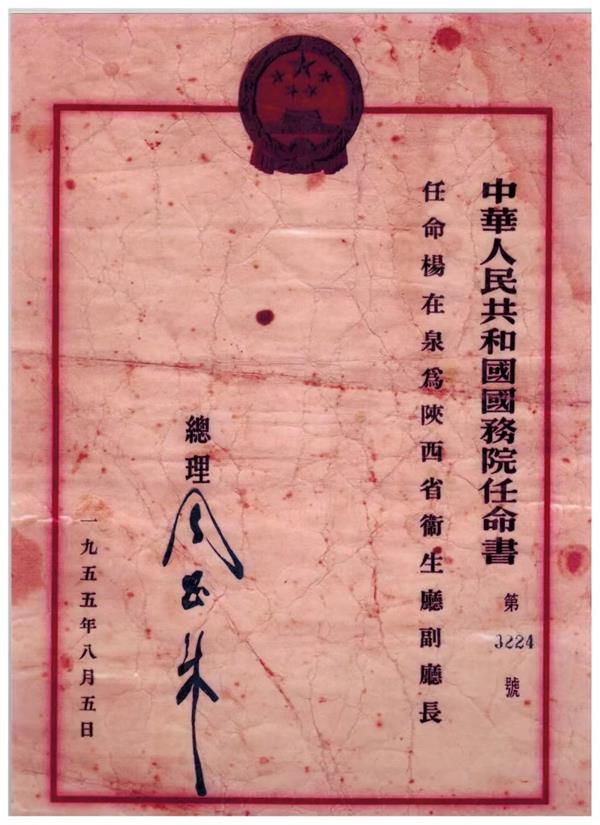 中華人民共和國國務院任命書
第
3224
號
任命楊在泉爲陝西省衞生廳副廳長
總理
周恩來
一九五五年八月五日